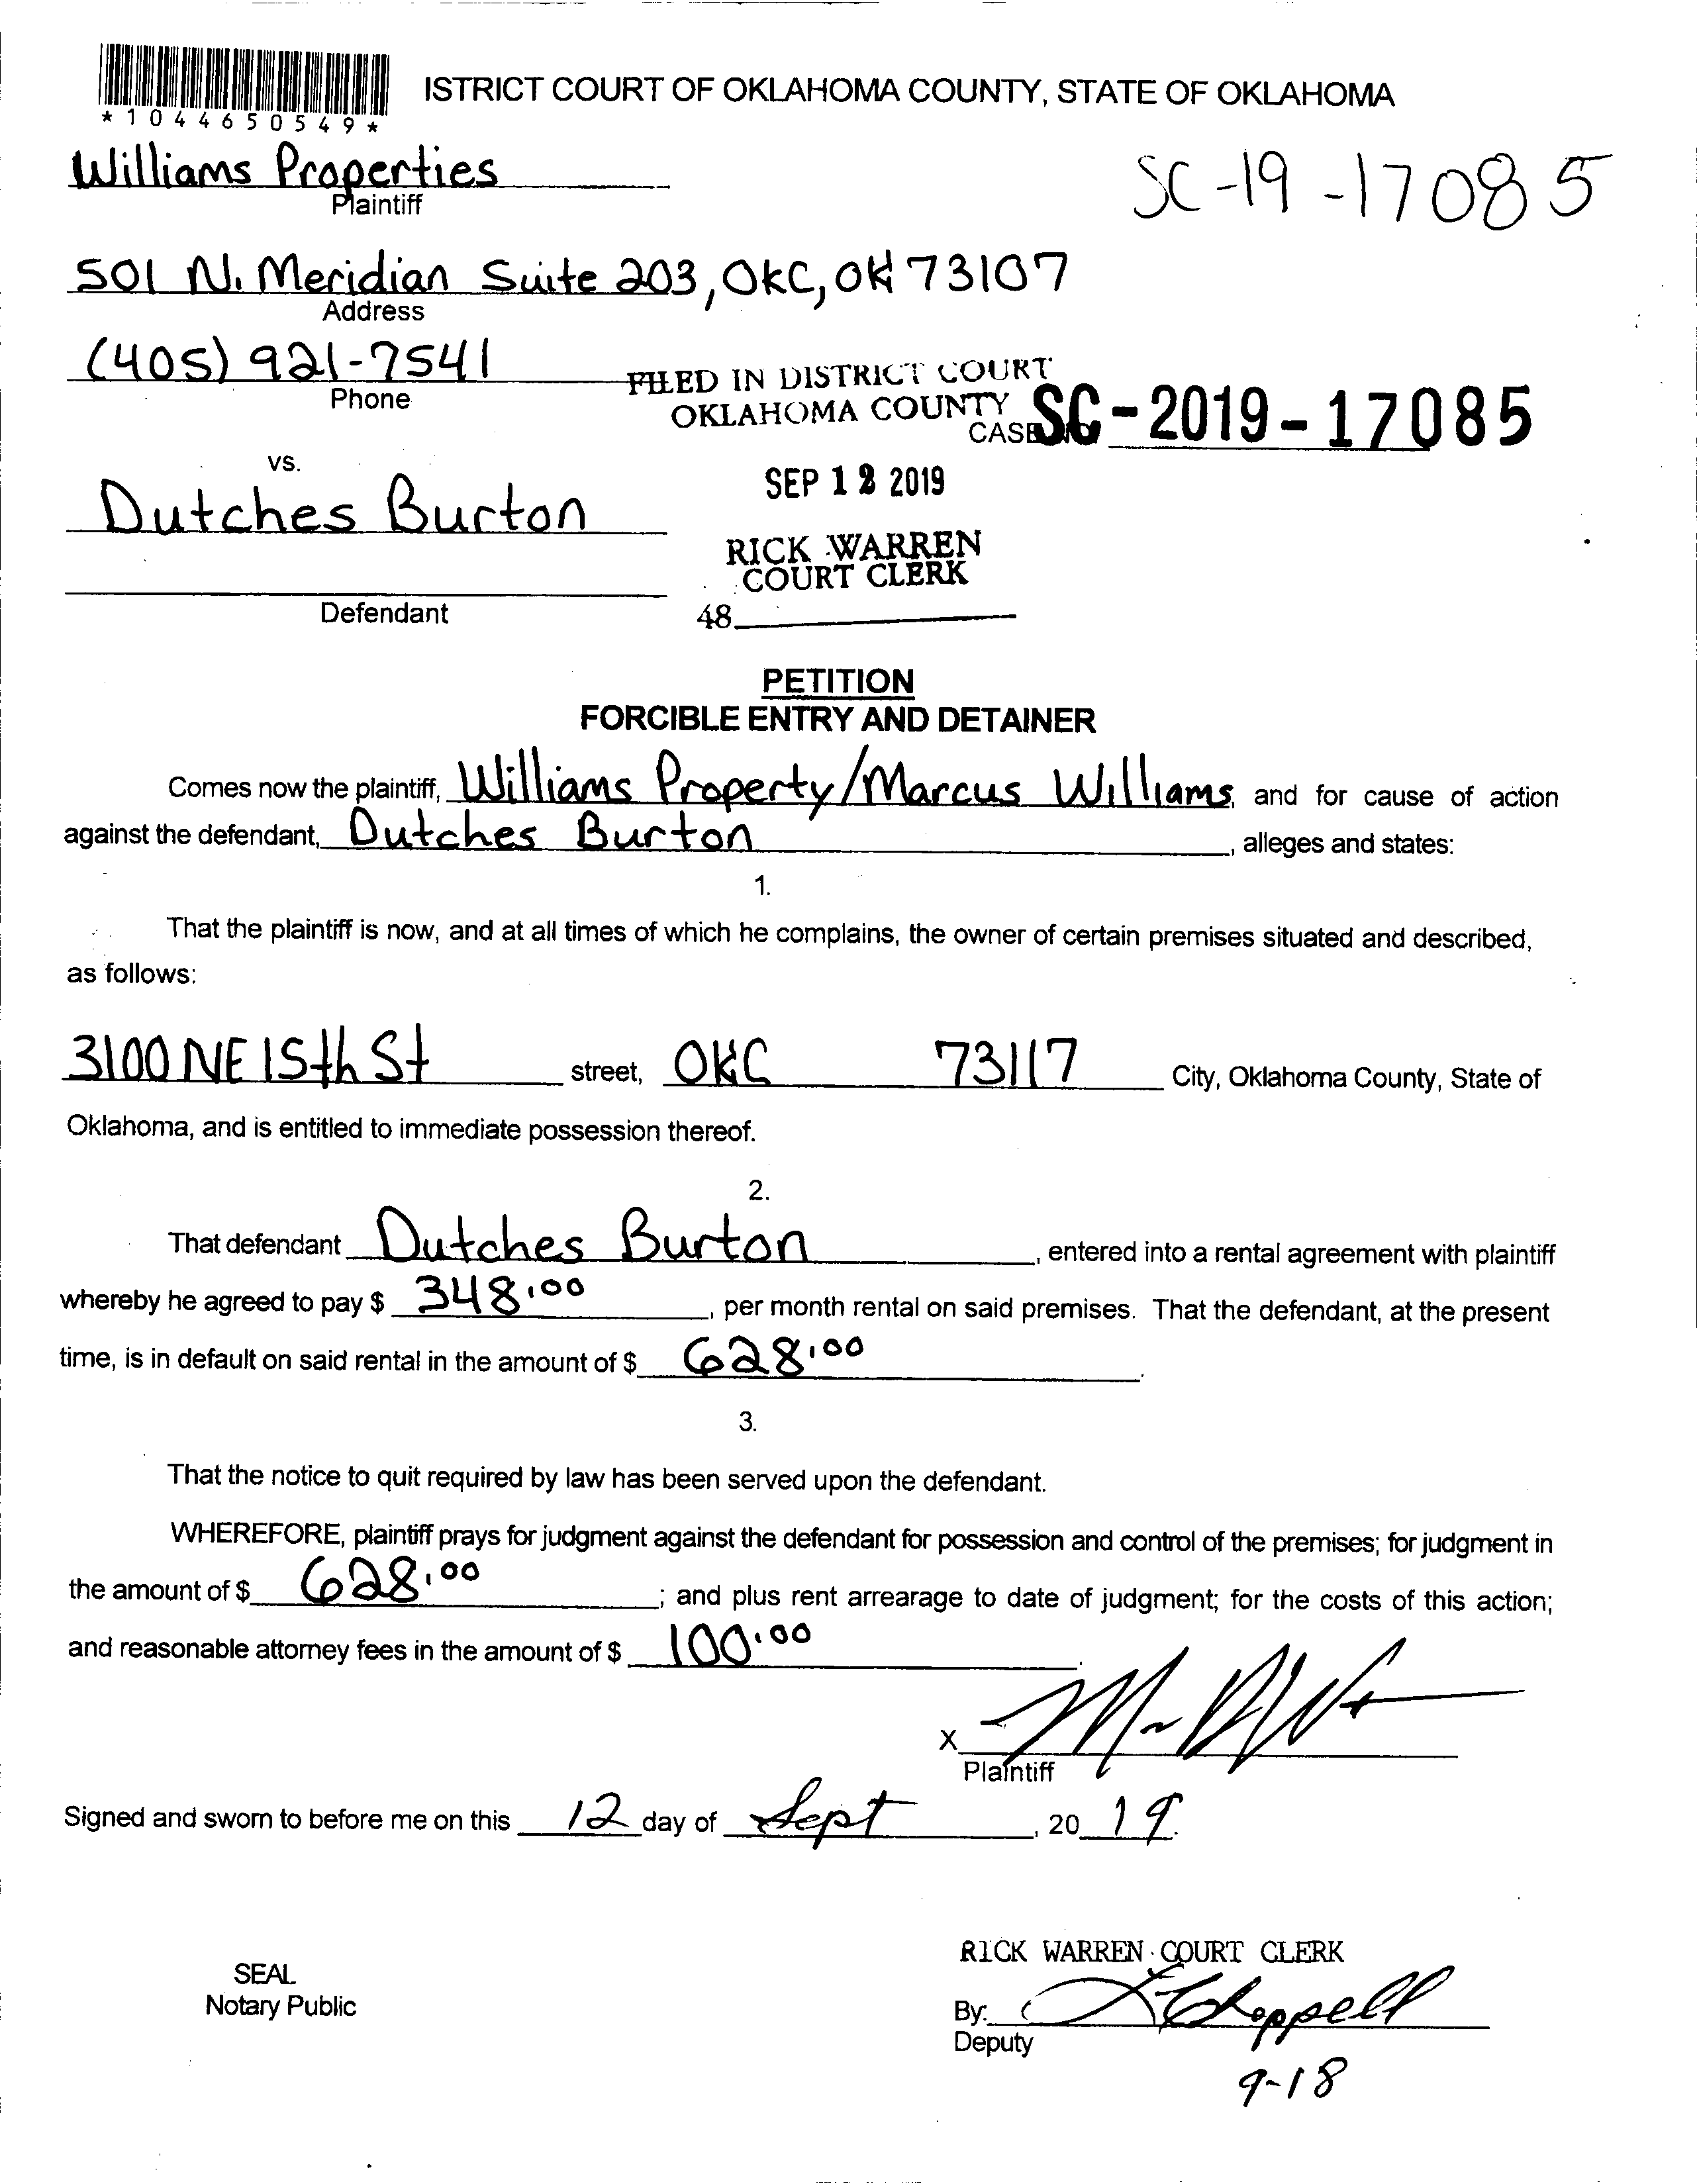 ISTRICT COURT OF OKLAHOMA COUNTY, STATE OF OKLAHOMA
*1044650549*
Williams Properties
Plaintiff
SC-19-17085
501 N. Meridian Suite 203, OKC, OK 73107
Address
(405) 921-7541
Phone
FILED IN DISTRICT COURT
OKLAHOMA COUNTY
CASE SC-2019-17085
vs.
SEP 12 2019
Dutches Burton
RICK WARREN
COURT CLERK
Defendant
48
PETITION
FORCIBLE ENTRY AND DETAINER
Comes now the plaintiff, Williams Property/Marcus Williams, and for cause of action
against the defendant, Dutches Burton, alleges and states:
1.
That the plaintiff is now, and at all times of which he complains, the owner of certain premises situated and described,
as follows:
3100 NE 15th St street, OKC 73117 City, Oklahoma County, State of
Oklahoma, and is entitled to immediate possession thereof.
2.
That defendant Dutches Burton, entered into a rental agreement with plaintiff
whereby he agreed to pay $ 348.00, per month rental on said premises. That the defendant, at the present
time, is in default on said rental in the amount of $ 628.00.
3.
That the notice to quit required by law has been served upon the defendant.
WHEREFORE, plaintiff prays for judgment against the defendant for possession and control of the premises; for judgment in
the amount of $ 628.00; and plus rent arrearage to date of judgment; for the costs of this action;
and reasonable attorney fees in the amount of $ 100.00.
X
Plaintiff
Signed and sworn to before me on this 12 day of Sept, 20 19.
RICK WARREN COURT CLERK
SEAL
Notary Public
By:
Deputy
9-18